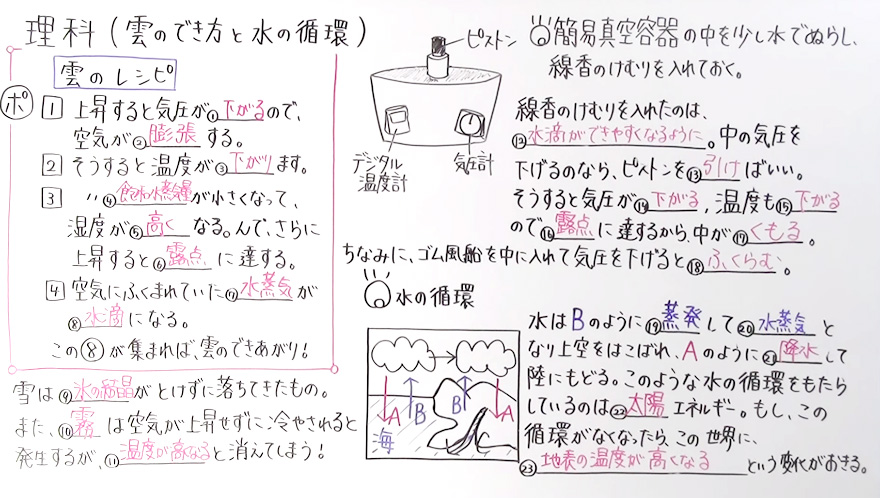 理科(雲のでき方と水の循環)
雲のレシピ
ポ
1 上昇すると気圧が①下がるので、
空気が②膨張する。
2 そうすると温度が③下がります。
3 〃④飽和水蒸気量が小さくなって、
湿度が⑤高くなる。んで、さらに
上昇すると⑥露点に達する。
4 空気にふくまれていた⑦水蒸気が
⑧水滴になる。
この⑧が集まれば、雲のできあがり!
雪は⑨氷の結晶がとけずに落ちてきたもの。
また、⑩霧は空気が上昇せずに冷やされると
発生するが、⑪温度が高くなると消えてしまう!
ピストン
デジタル
温度計
気圧計
簡易真空容器の中を少し水でぬらし、
線香のけむりを入れておく。
線香のけむりを入れたのは、
⑫水滴ができやすくなるように。中の気圧を
下げるのなら、ピストンを⑬引けばいい。
そうすると気圧が⑭下がる,温度も⑮下がる
ので⑯露点に達するから、中が⑰くもる。
ちなみに、ゴム風船を中に入れて気圧を下げると⑱ふくらむ。
水の循環
A
B
B
A
海
水はBのように⑲蒸発して⑳水蒸気と
なり上空をはこばれ、Aのように㉑降水して
陸にもどる。このような水の循環をもたら
しているのは㉒太陽エネルギー。もし、この
循環がなくなったら、この世界に、
㉓地表の温度が高くなるという変化がおきる。